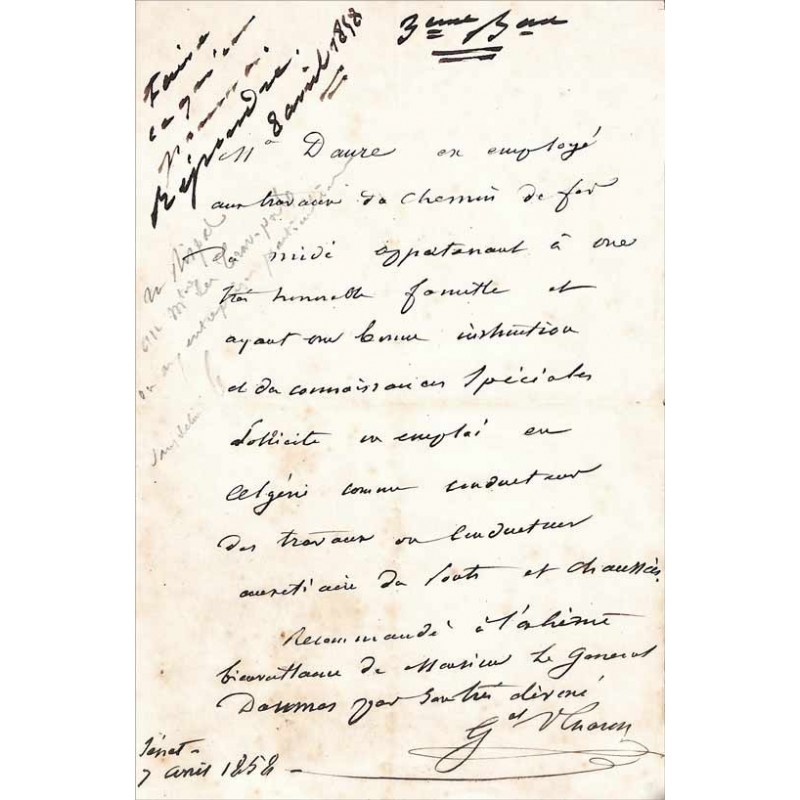 3eme Beau
Faire
ce qui est
Répondre.
8 avril 1858
Mr Daure ex employé
aux travaux du chemin de fer
du midi appartenant à une
très honorable famille et
ayant une bonne instruction
et des connaissances spéciales
sollicite un emploi en
algérie comme conducteur
des travaux ou conducteur
auxiliaire des ponts et chaussées
Recommandé à l'extrème
bienveillance de Monsieur le General
Daumas par son très dévoué
Gal
7 avril 1858
entreprise particulière